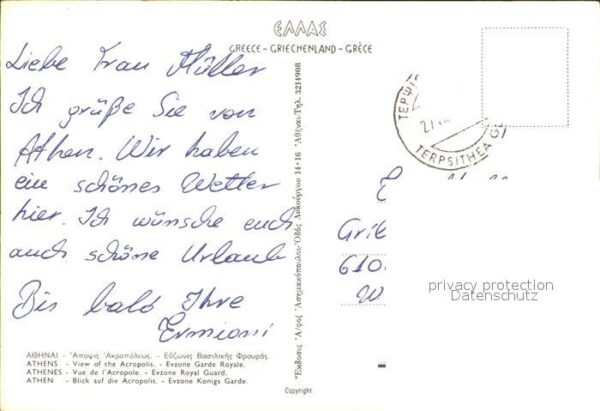 ΕΛΛΑΣ
GREECE - GRIECHENLAND - GRÈCE
Liebe Frau Müller
Ich grüße Sie von
Athen. Wir haben
ein schönes Wetter
hier. Ich wünsche euch
auch schöne Urlaub
Bis bald Ihre
Ermioni
ΑΘΗΝΑΙ - Ἄποψις Ἀκροπόλεως. - Εὔζωνες Βασιλικῆς Φρουρᾶς.
ATHENS - View of the Acropolis. - Evzone Garde Royale.
ATHENES - Vue de l'Acropole. - Evzone Royal Guard.
ATHEN - Blick auf die Acropolis. - Evzone Konigs Garde.
Ἔκδοσις Ἀφοί Ἀσημακόπουλοι-Ὁδός Λυκούργου 14-16 Ἀθῆναι-Τηλ. 3211908
Copyright
ΤΕΡΨΙ
27
TERPSITHEA
Grie
610
W
privacy protection
Datenschutz